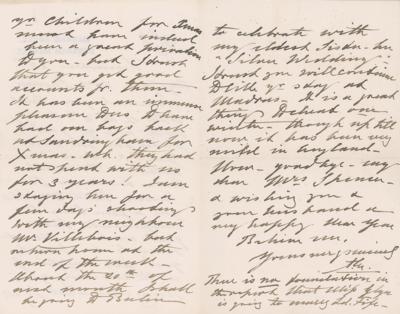 yr Children for Xmas
must have indeed
been a great privation
to you – but I trust
that you get good
accounts fr. them –
It has been an immense
pleasure to us to have
had our boys back
at Sandringham for
Xmas – wh. they had
not spent with us
for 3 years! I am
staying here for a
few days shooting
with my neighbour
Mr. Villebois – but
return home at the
end of the week –
About the 20th of
next month I shall
be going to Berlin
to celebrate with
my eldest Sister her
"Silver Wedding" –
I trust you will continue
to like yr stay at
Madras. It is a great
thing to cheat one
winter – though up till
now it has been very
mild in England.
Now – good-bye – my
dear Mrs
a wishing you &
your husband a
very happy New Year
Believe me,
Yours very sincerely
There is no foundation in
the report that Miss
is going to marry Ld.